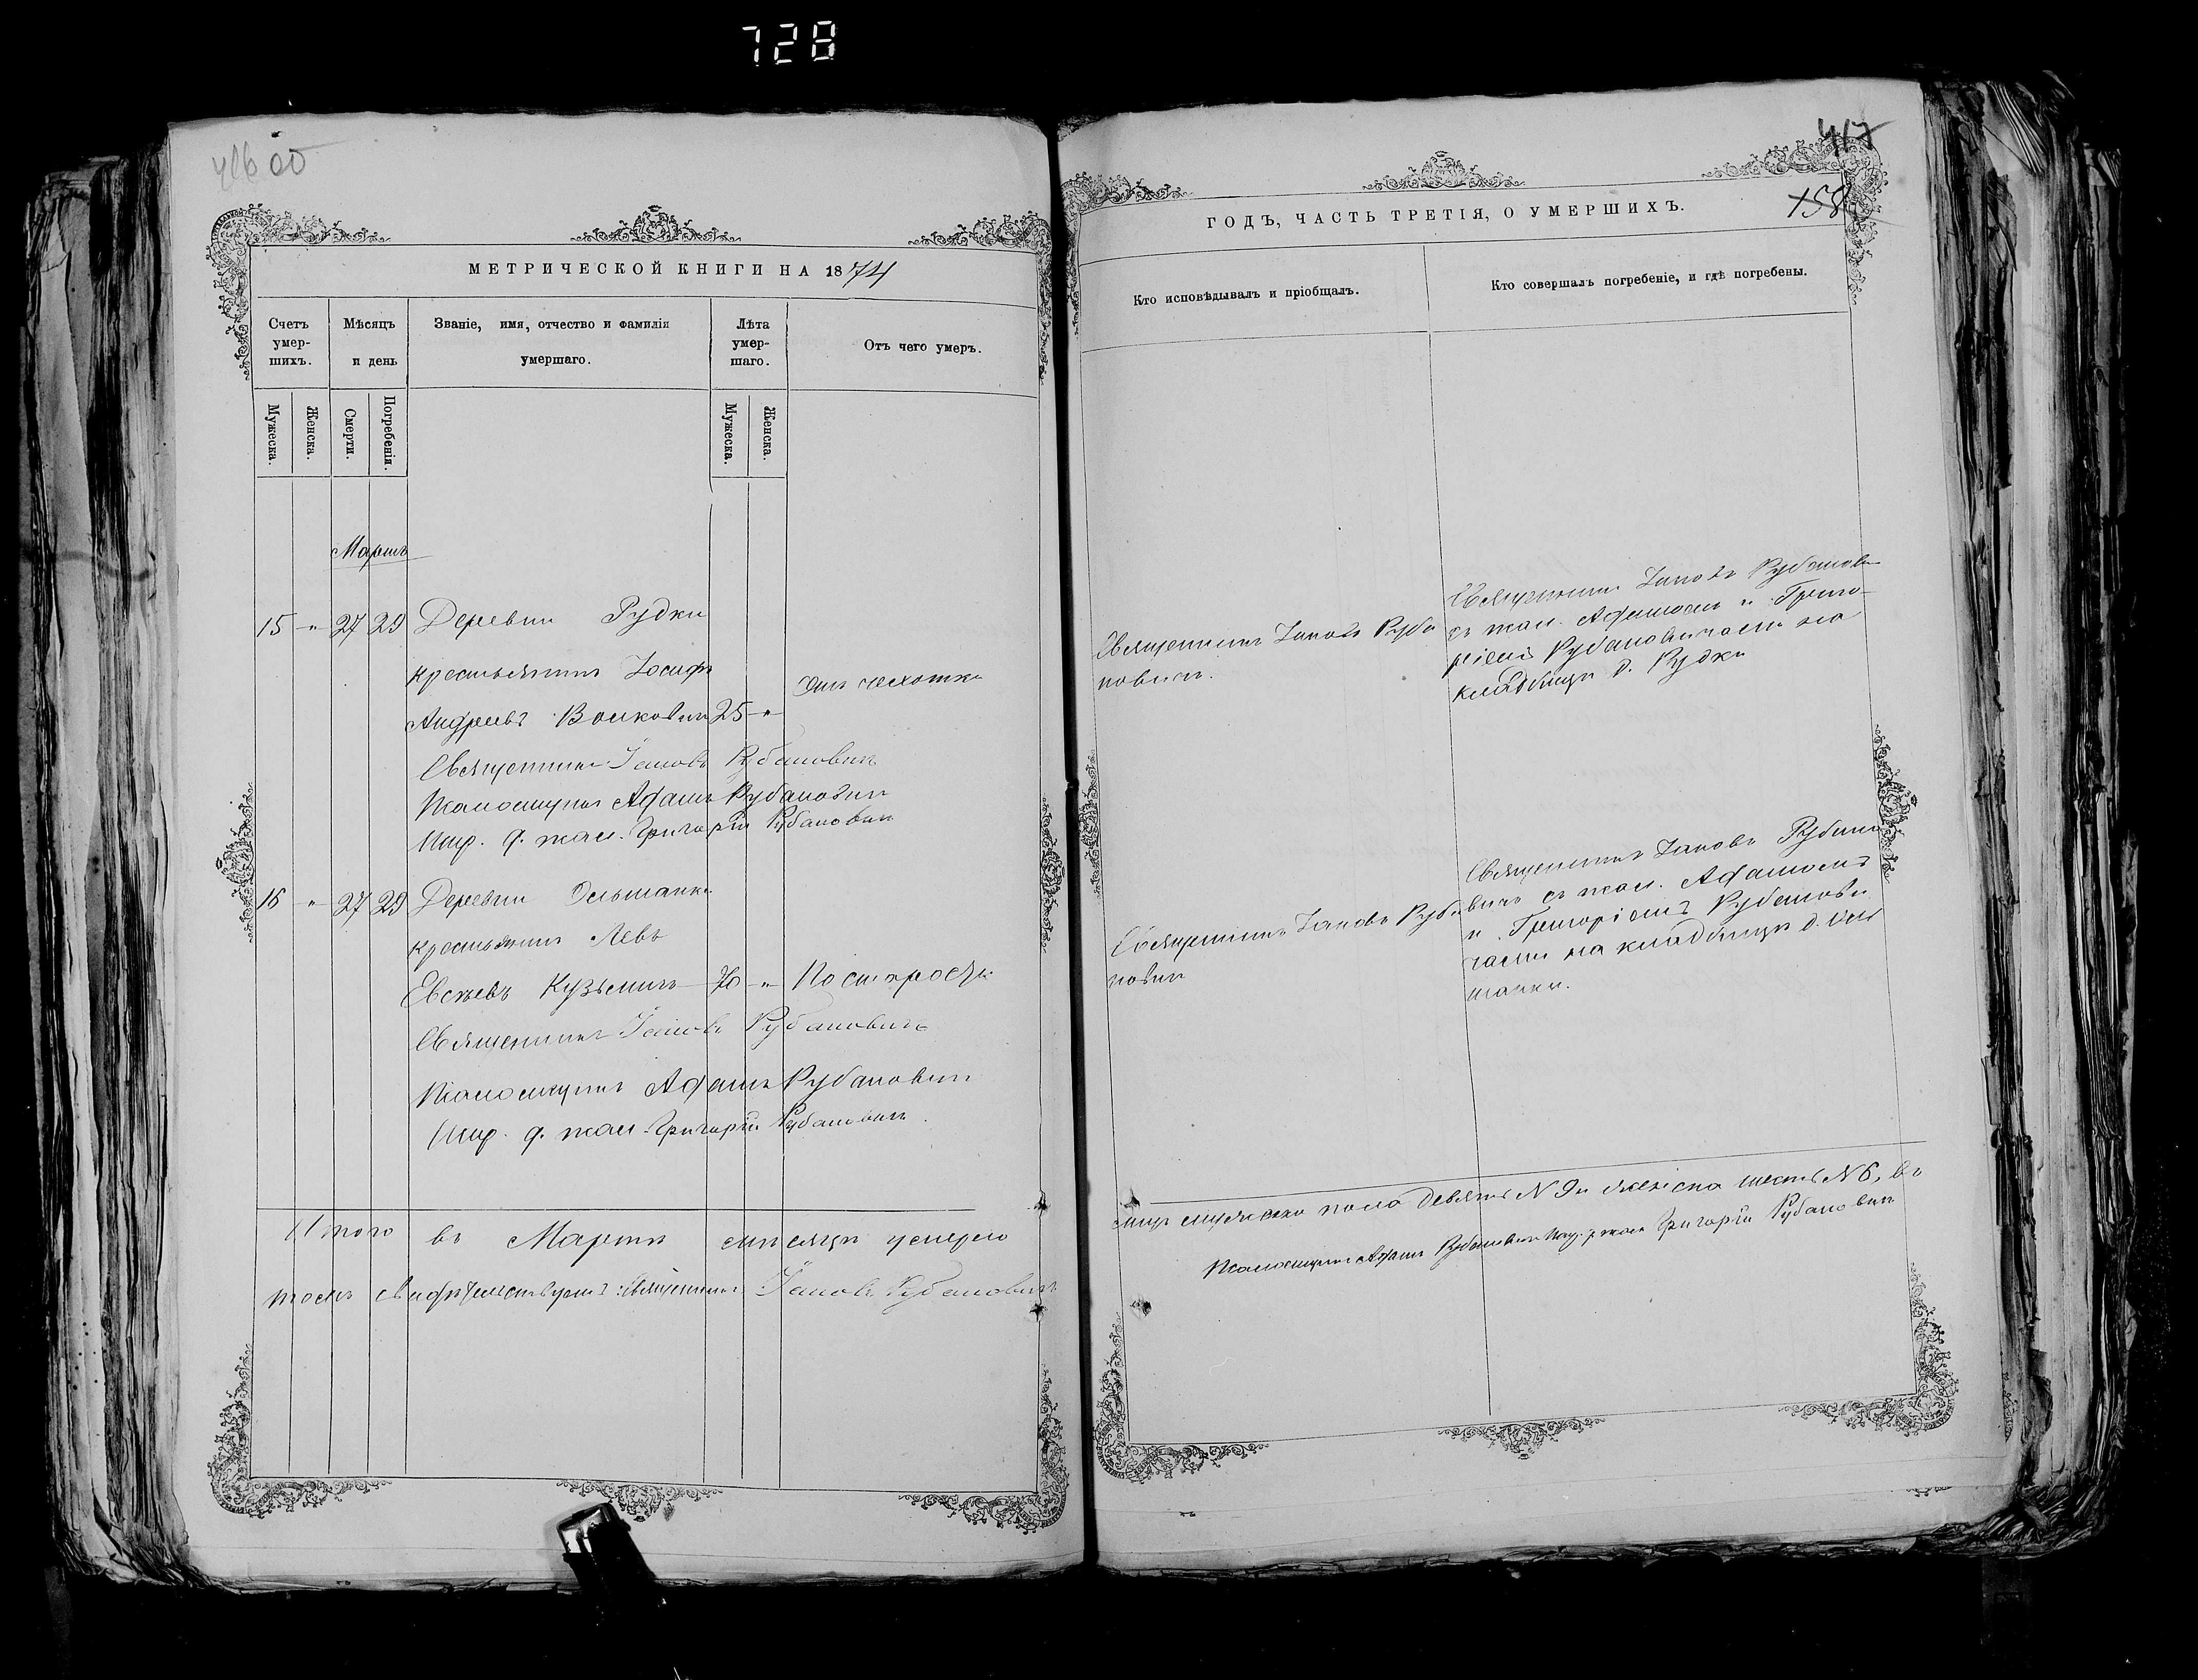 728
416 об
МЕТРИЧЕСКОЙ КНИГИ НА 1874
Счетъ умер-шихъ.
Мѣсяцъ и день
Званіе, имя, отчество и фамилія умершаго.
Лѣта умер-шаго.
Отъ чего умеръ.
Мужеска.
Женска.
Смерти.
Погребенія.
Мужеска.
Женска.
Мартъ
15 " 27 29 Деревни Рудки
крестьянинъ Іосифъ
Андреевъ Волковичъ 25 " Отъ чахотки
Священникъ Іаковъ Рубановичъ
Псаломщикъ Адамъ Рубановичъ
Шт. д. псал. Григорій Рубановичъ
16 " 27 29 Деревни Ольшанки
крестьянинъ Левъ
Евсѣевъ Кузьмичъ 70 " По старости
Священникъ Іаковъ Рубановичъ
Псаломщикъ Адамъ Рубановичъ
Шт. д. псал. Григорій Рубановичъ
Итого въ Мартѣ мѣсяцѣ умерло
томъ свидѣтельствуемъ: Священникъ Іаковъ Рубановичъ
417
158
ГОДЪ, ЧАСТЬ ТРЕТІЯ, О УМЕРШИХЪ.
Кто исповѣдывалъ и пріобщалъ.
Кто совершалъ погребеніе, и гдѣ погребены.
Священникъ Іаковъ Руба
новичъ.
Священникъ Іаковъ Рубанови
съ псал. Адамомъ и Григо-
ріемъ Рубановичами на
кладбищѣ д. Рудки
Священникъ Іаковъ Руба
новичъ
Священникъ Іаковъ Рубано
вичъ съ псал. Адамомъ
и Григоріемъ Рубанови
чами на кладбищѣ д. Оль
шанки.
мужеска пола девять N 9 и женска шесть N 6, въ
Псаломщикъ Адамъ Рубановичъ д. псал. Григорій Рубановичъ